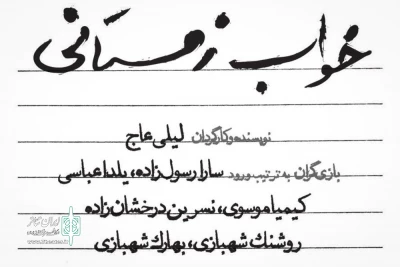 خواب زمستانی
نویسنده و کارگردان لیلی عاج
بازی‌گران به ترتیب ورود سارا رسول‌زاده، یلدا عباسی
کیمیا موسوی، نسرین درخشان‌زاده
روشنک شهبازی، بهارک شهبازی
ایران تئاتر